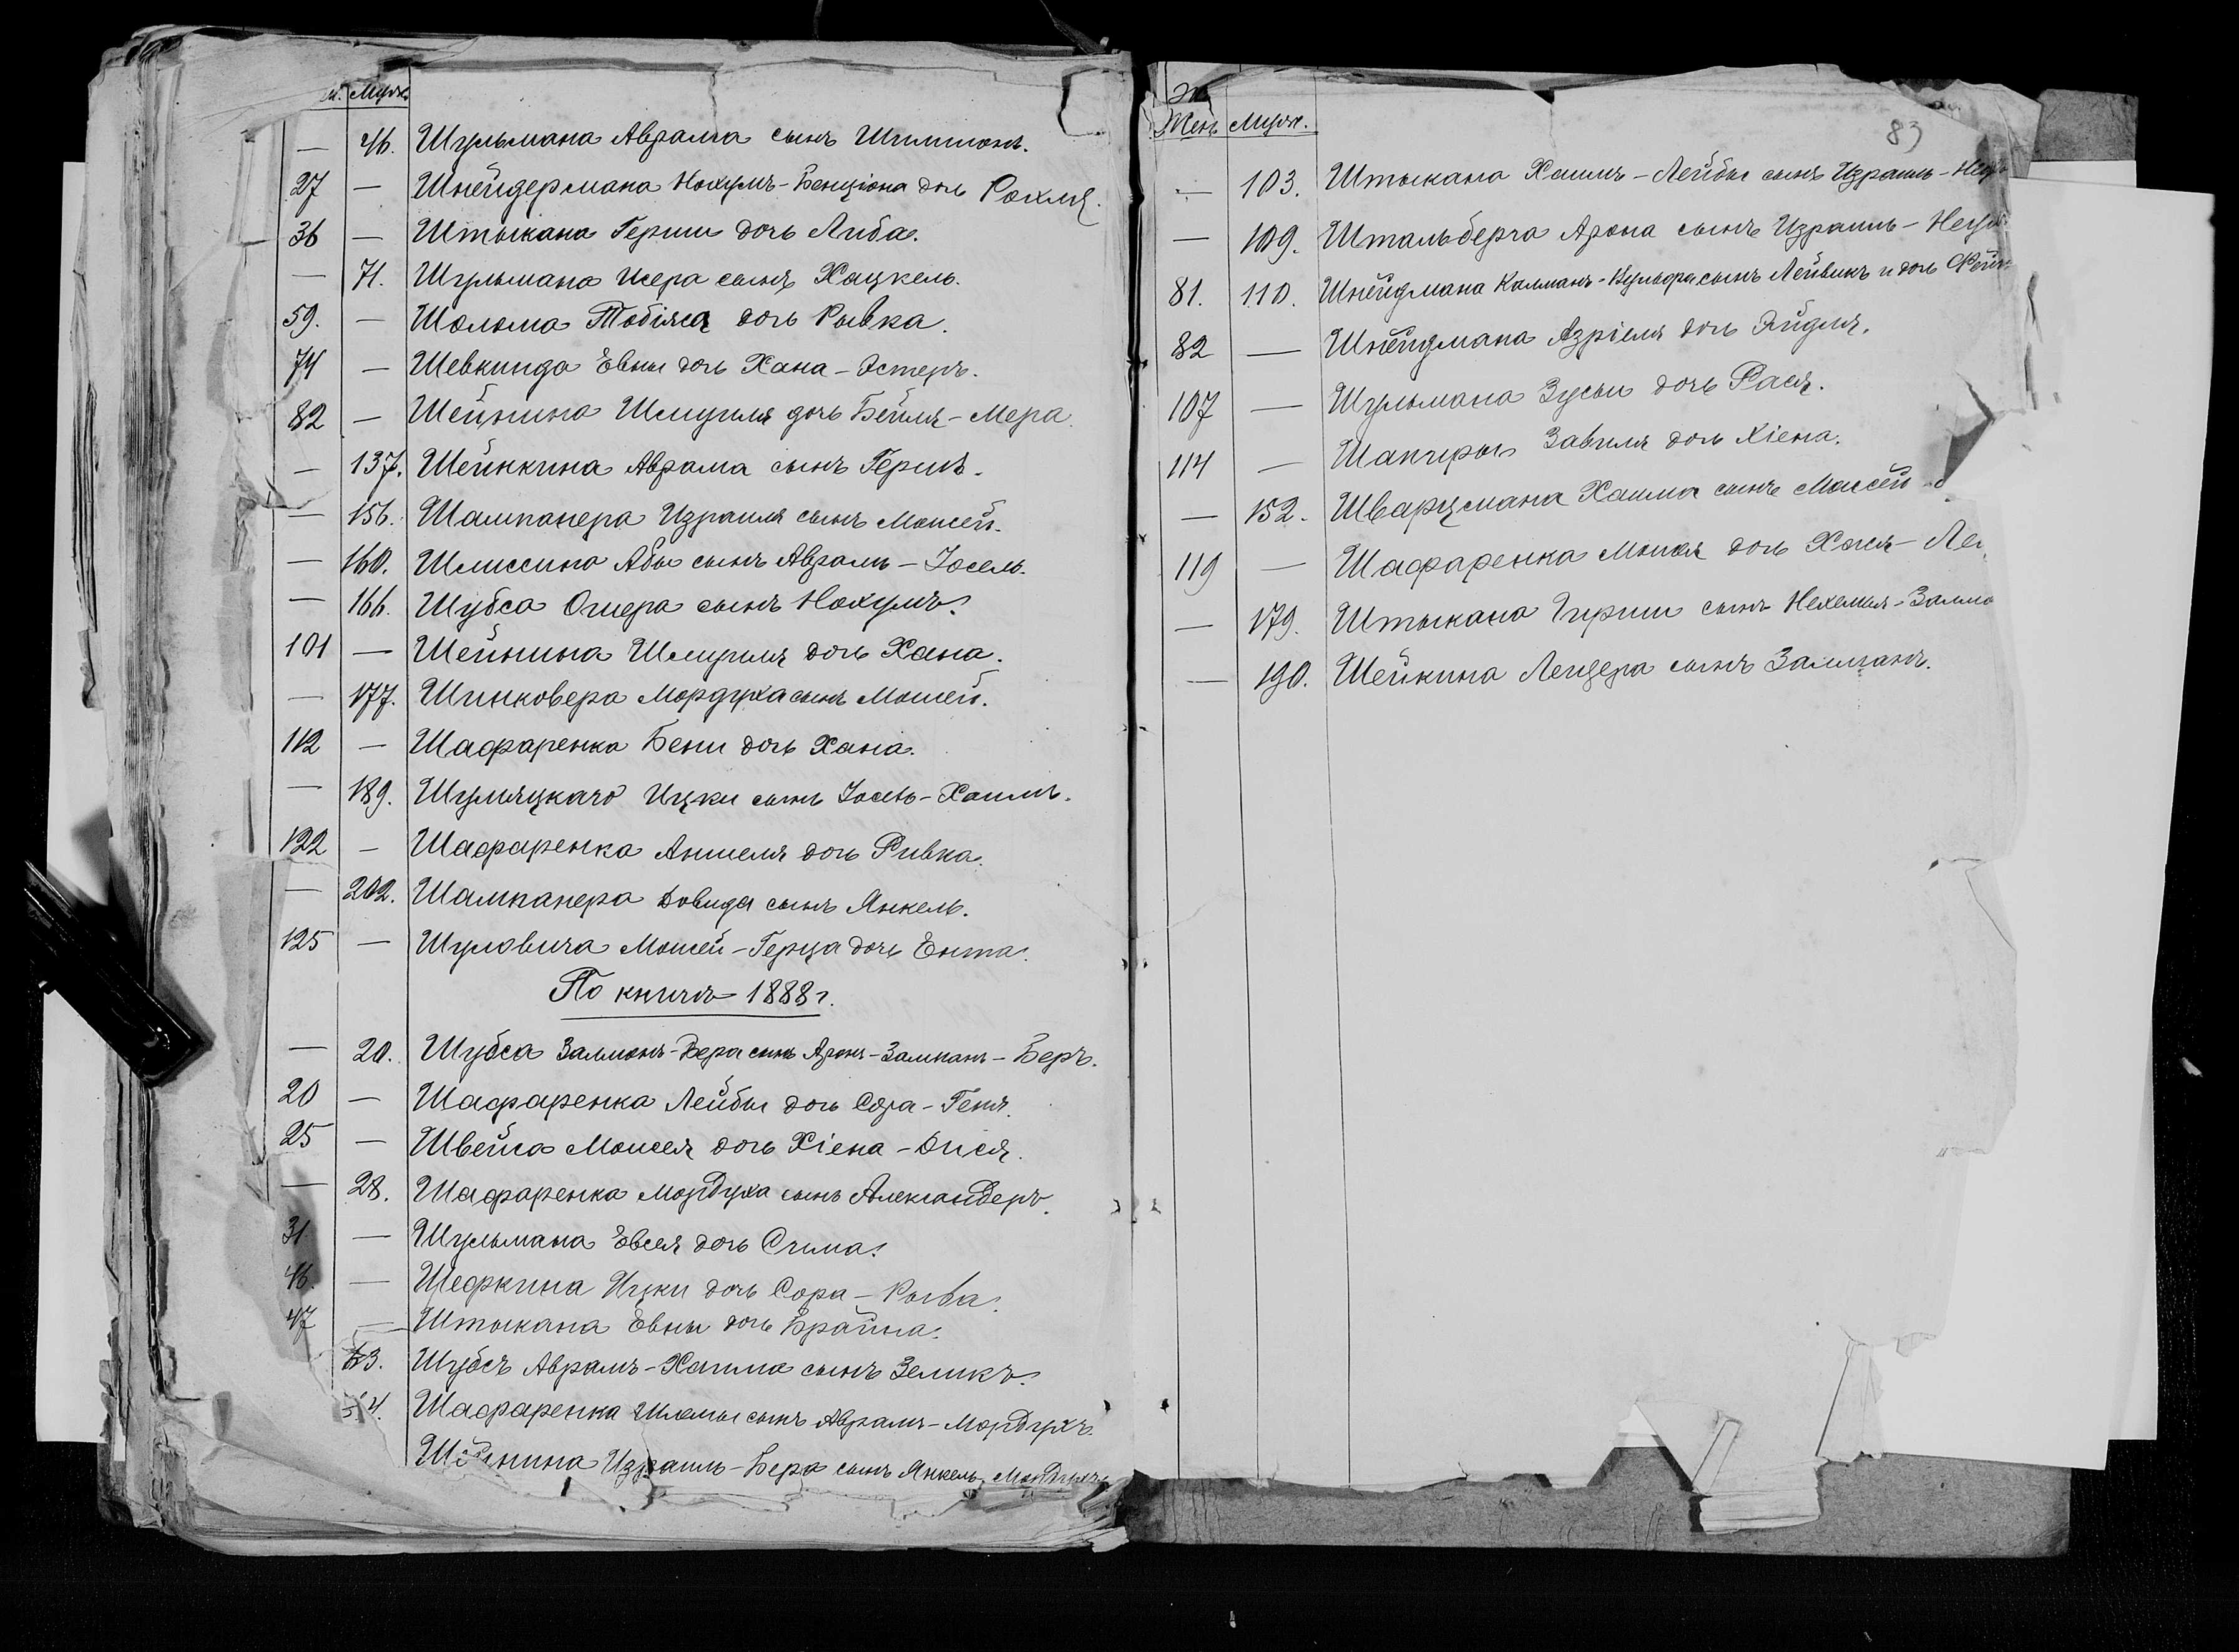 Муж.
— 46. Шульмана Аврама сынъ Шлиомонъ.
27 — Шнейдермана Нохумъ-Бенціона дочь Рохля.
36 — Штыкана Герши дочь Либа.
— 71. Шульмана Исера сынъ Хацкель.
59. — Шолома Тобіяса дочь Рывка.
74 — Шевкинда Евны дочь Хана-Эстеръ.
82 — Шейнина Шмуиля дочь Бейля-Мера.
— 137. Шейнкина Аврама сынъ Гершъ.
— 156. Шампанера Израиля сынъ Моисей.
— 160. Шлиссина Абы сынъ Аврамъ-Іосель.
— 166. Шубса Ошера сынъ Нохумъ.
101 — Шейнина Шмуиля дочь Хана.
— 177. Шинковера Мордуха сынъ Мошей.
112 — Шафаренка Бени дочь Хана.
— 189. Шумяцкаго Ицки сынъ Іосель-Хаимъ.
122 — Шафаренка Аншеля дочь Ривка.
— 202. Шампанера Довида сынъ Янкель.
125 — Шуловича Мошей-Герца дочь Ента.
По книгѣ 1888 г.
— 20. Шубса Залмонъ-Бера сынъ Аронъ-Залманъ-Беръ.
20 — Шафаренка Лейбы дочь Сора-Геня.
25 — Швейса Моисея дочь Хіена-Дися.
— 28. Шафаренка Мордуха сынъ Александеръ.
31 — Шульмана Евсея дочь Сима.
46. — Шефкина Ицки дочь Сора-Рыва.
47 — Штыкана Евны дочь Брайна.
53. Шубсъ Аврамъ-Хаима сынъ Зеликъ.
54. Шафаренка Шлемы сынъ Аврамъ-Мордухъ.
Шейнина Израиль-Бера сынъ Янкель-Мордухъ
83
Жен. Муж.
— 103. Штыкана Хаимъ-Лейбы сынъ Израиль-
— 109. Штальберга Арона сынъ Израиль-
81. 110. Шнейдмана Калманъ-Вульфа сынъ Лейвикъ и дочь
82 — Шнейдмана Азріеля дочь Эйдля.
107 — Шульмана Зусы дочь Рася.
114 — Шапиры Завеля дочь Хіена.
— 152. Шварцмана Хаима сынъ Моисей
119 — Шафаренка Моисея дочь Хася-
— 179. Штыкана Гирши сынъ Нехемья-
— 190. Шейкина Лейзера сынъ Залманъ.